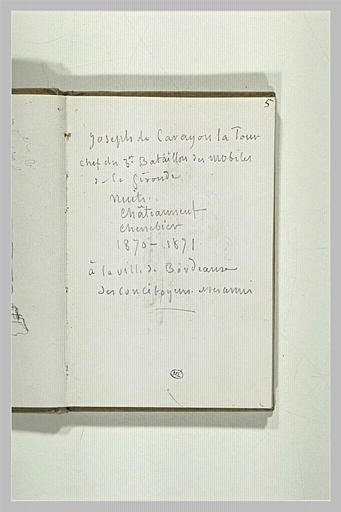 5
Joseph de Carayon la Tour
chef du 3e Bataillon des mobiles
de la Gironde
Nuits
Châteauneuf
Chenebier
1870-1871
à la ville de Bordeaux
ses concitoyens